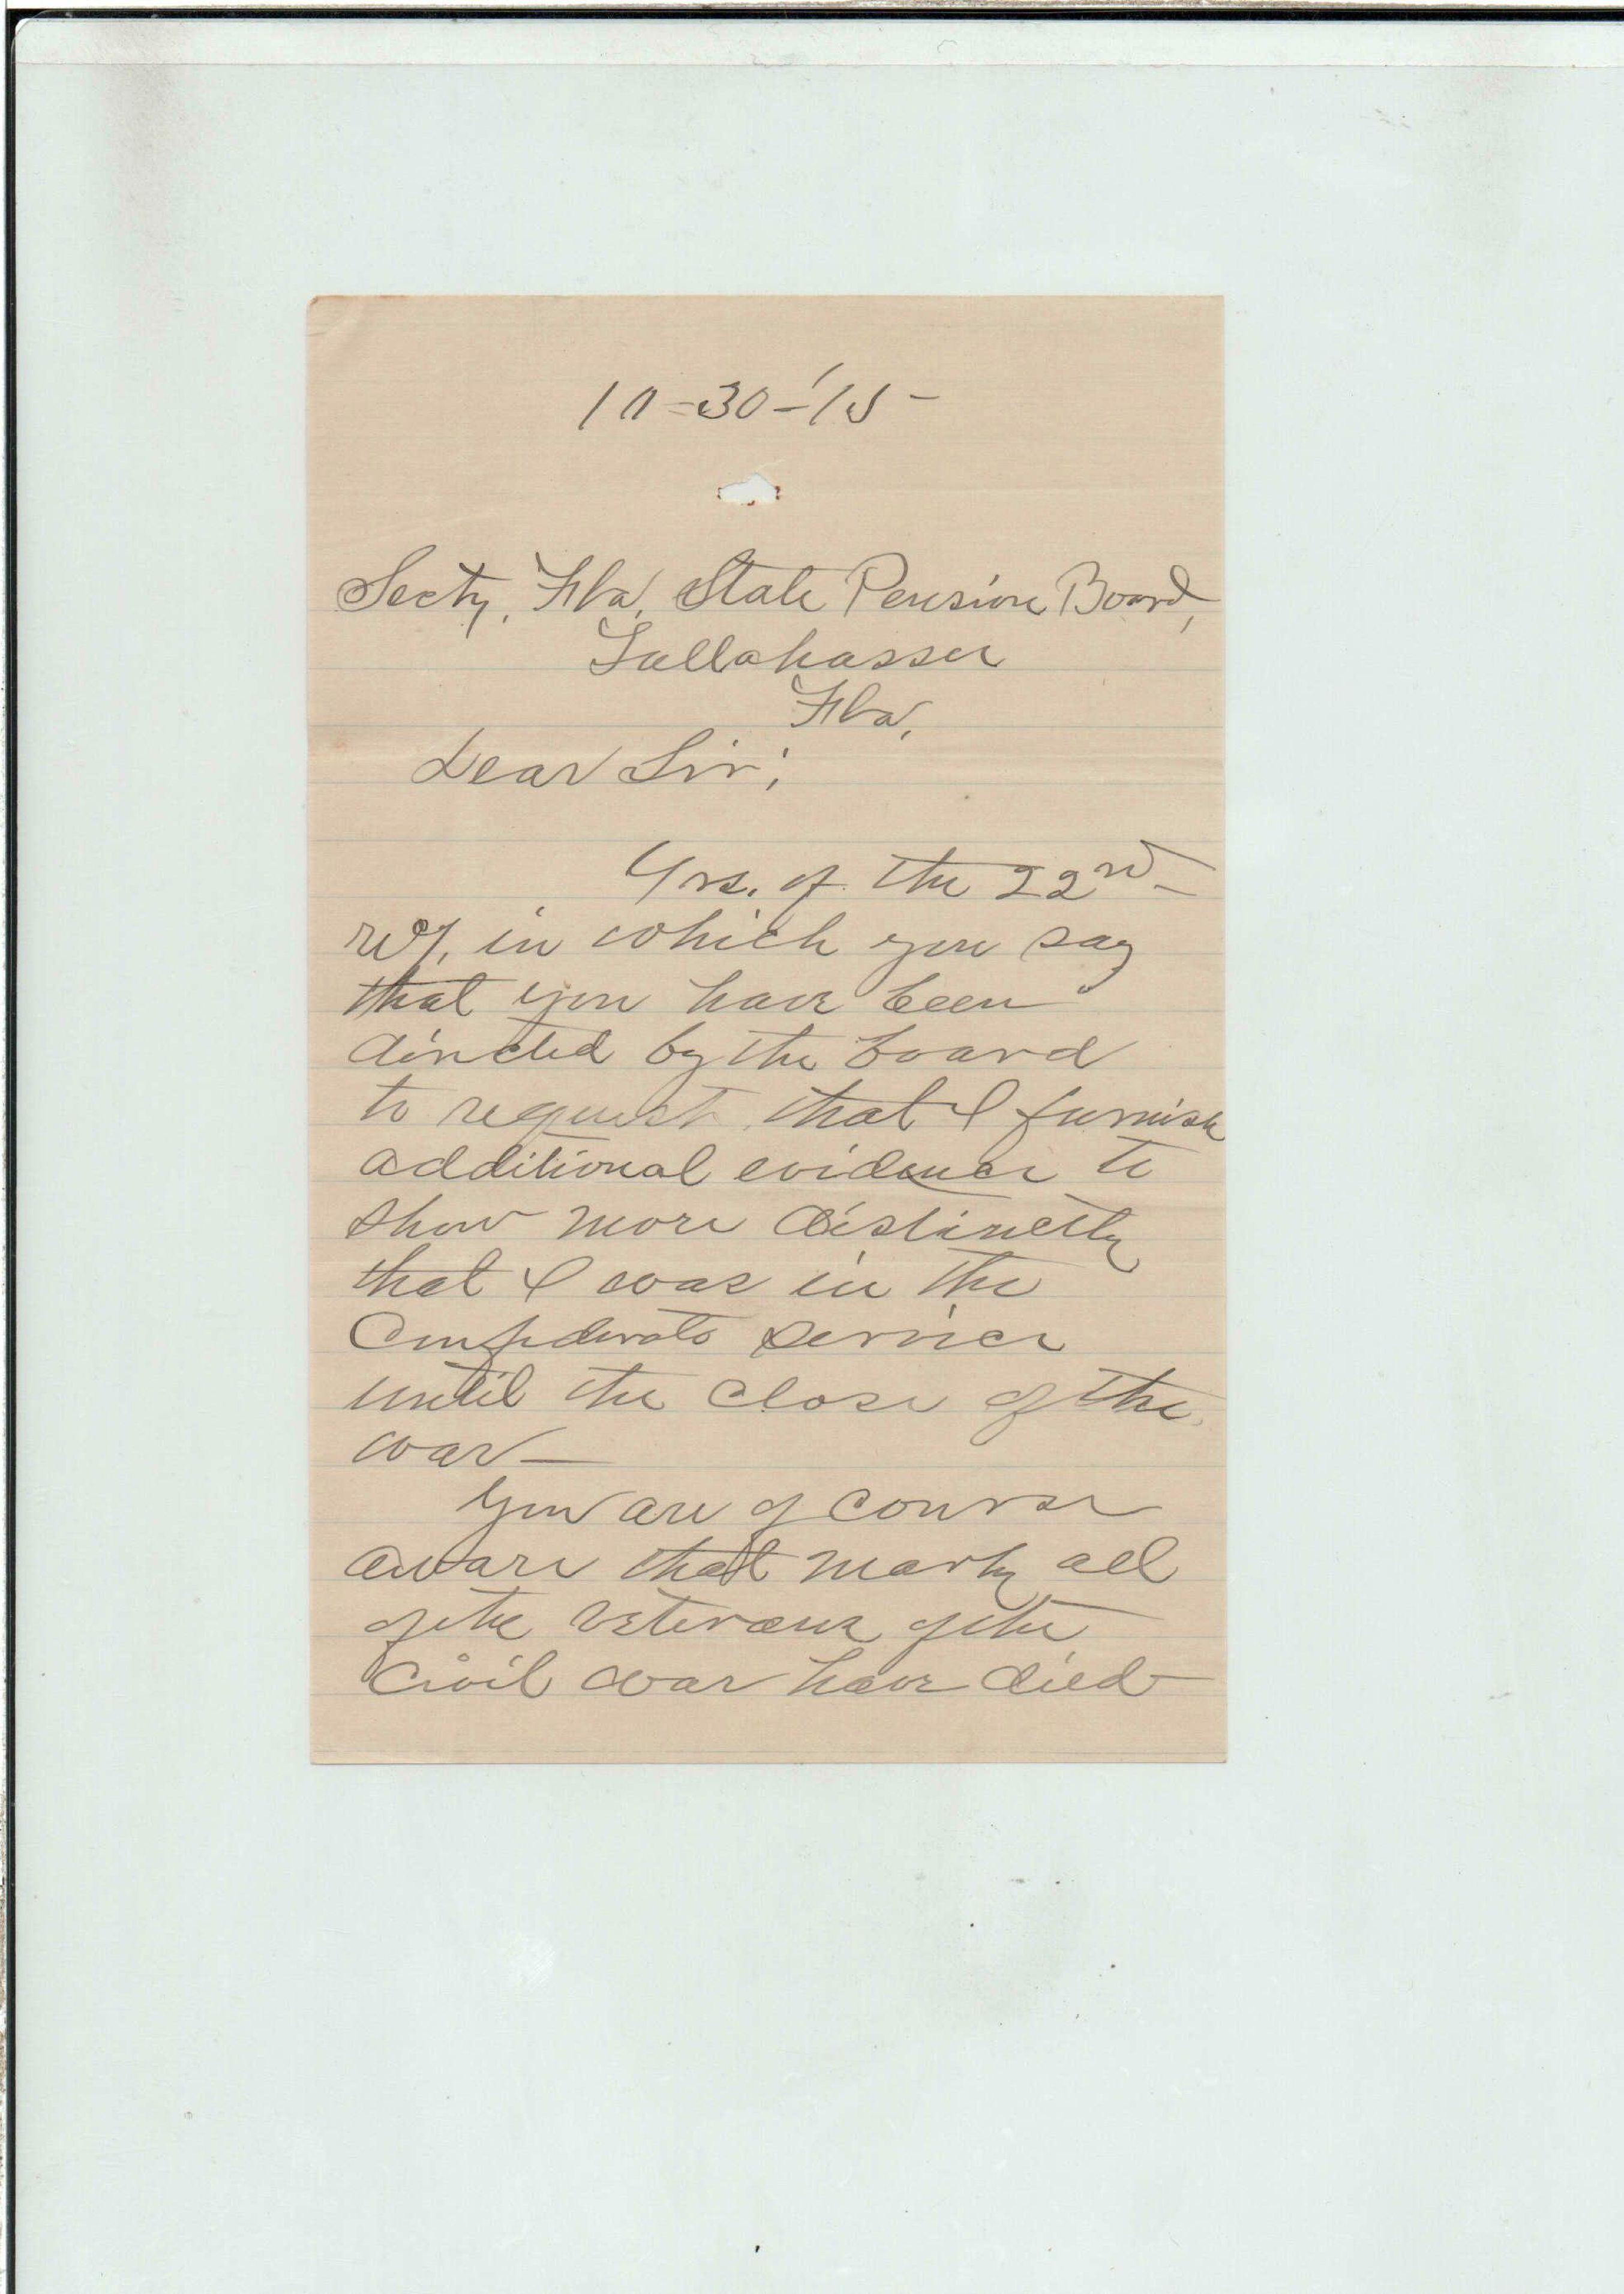 10-30-'15-
Secty, Fla, State Pension Board,
Tallahassee
Fla,
Dear Sir;
Yrs. of the 22nd-
in which you say
that you have been
directed by the board
to request that I furnish
additional evidence to
show more distinctly
that I was in the
Confederate service
until the close of the
war—
You are of course
aware that nearly all
of the veterans of the
Civil war have died